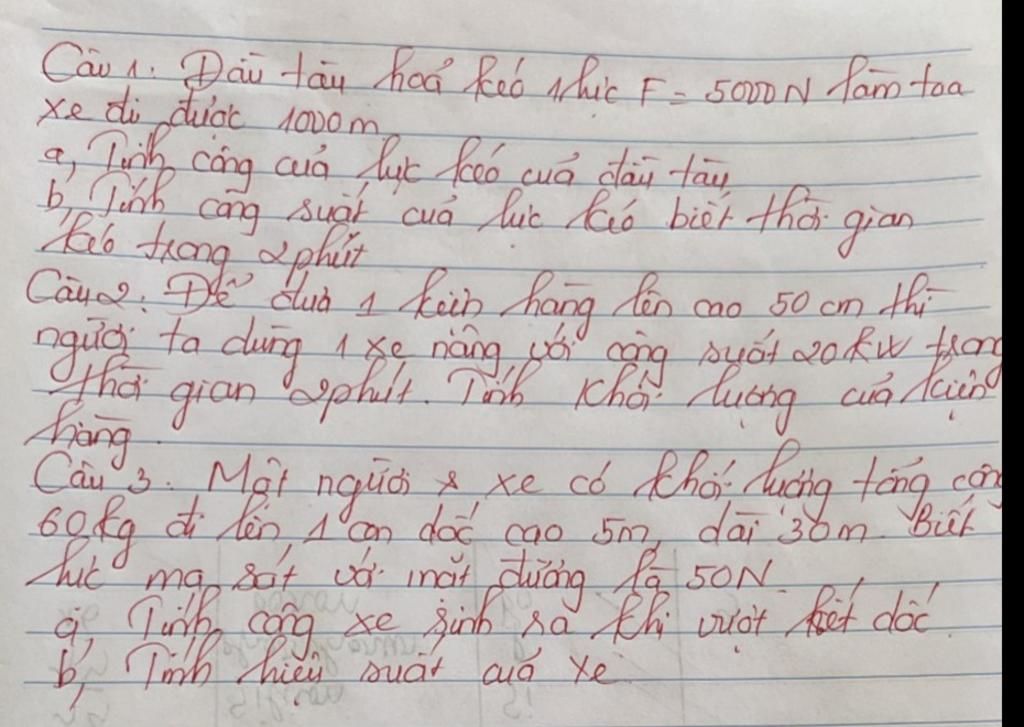 Câu 1. Đầu tàu hoả kéo 1 lực F = 5000N làm toa
xe đi được 1000m
a, Tính công của lực kéo của đầu tàu
b, Tính công suất của lực kéo biết thời gian
kéo trong 2 phút
Câu 2. Để đưa 1 kiện hàng lên cao 50 cm thì
người ta dùng 1 xe nâng với công suất 20 kW trong
thời gian 2 phút. Tính khối lượng của kiện
hàng.
Câu 3. Một người & xe có khối lượng tổng cộng
60kg đi lên 1 con dốc cao 5m, dài 30m. Biết
lực ma sát với mặt đường là 50N
a, Tính công xe sinh ra khi vượt hết dốc.
b, Tính hiệu suất của xe